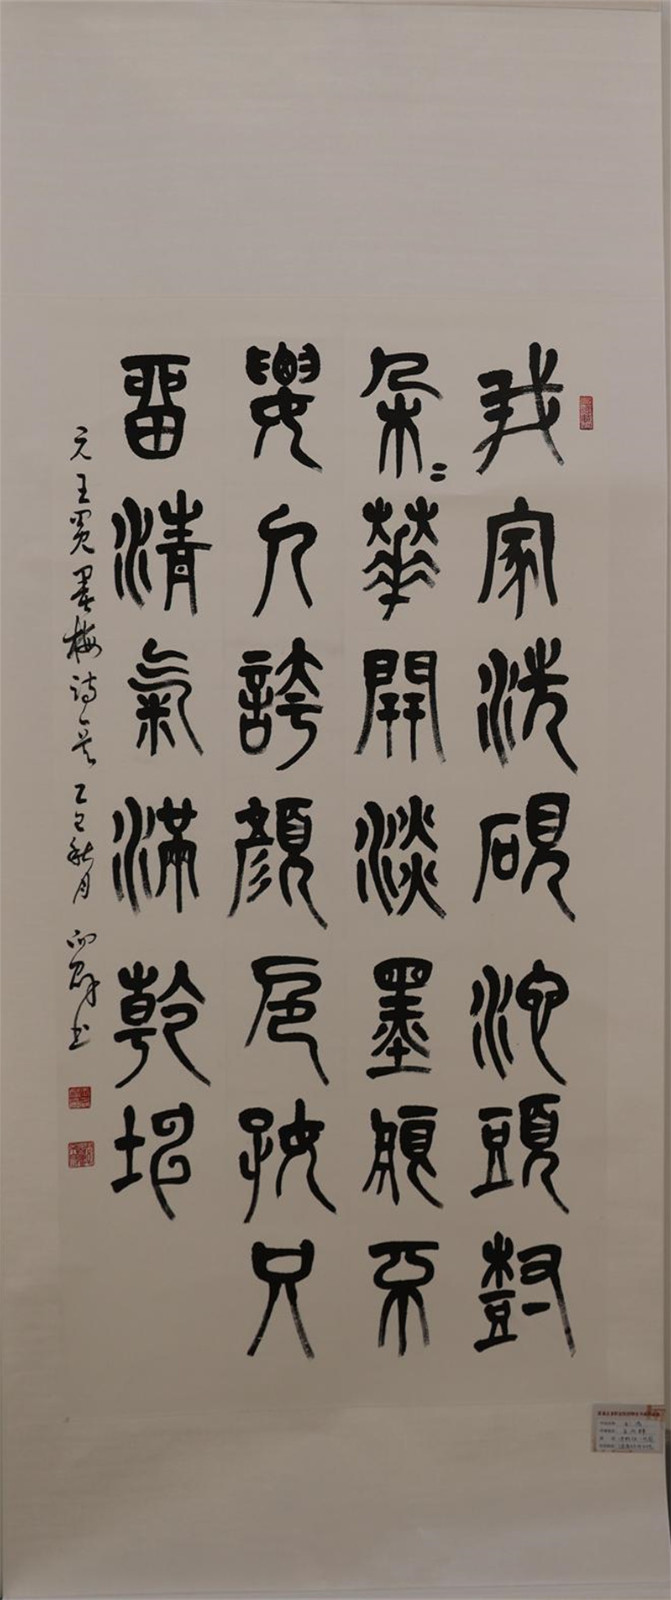 我家洗硯池頭樹
朵〻華開淡墨痕不
要人誇顏色好只
留清氣滿乾坤
元王冕墨梅詩 乙巳秋月 向群书